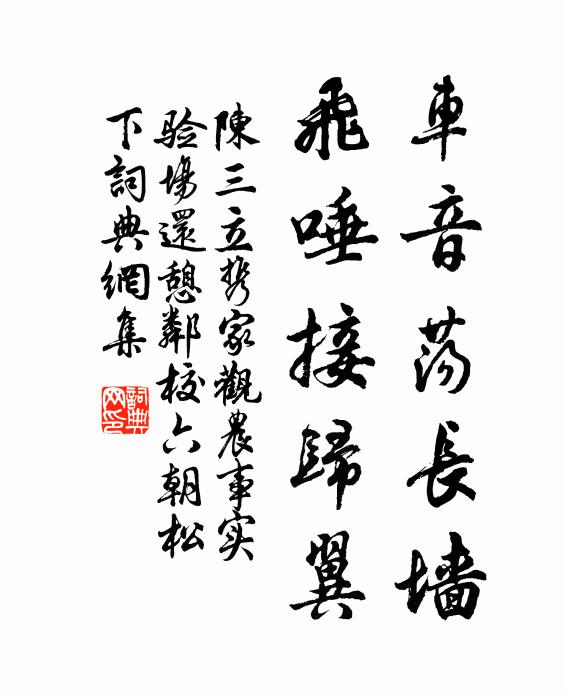 車音荡長墙
飛唾接歸翼
陳三立携家觀農事实
验場還憩鄰校六朝松
下詞典網集
詞典网印